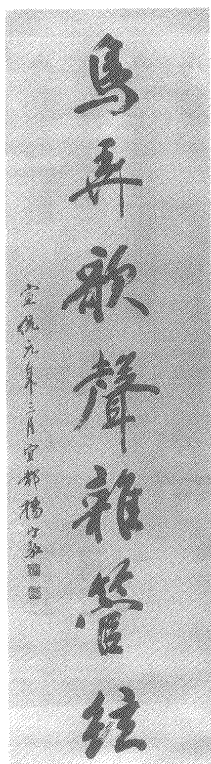 鳥弄歌聲雜管絃
宣統元年三月宜都楊守敬